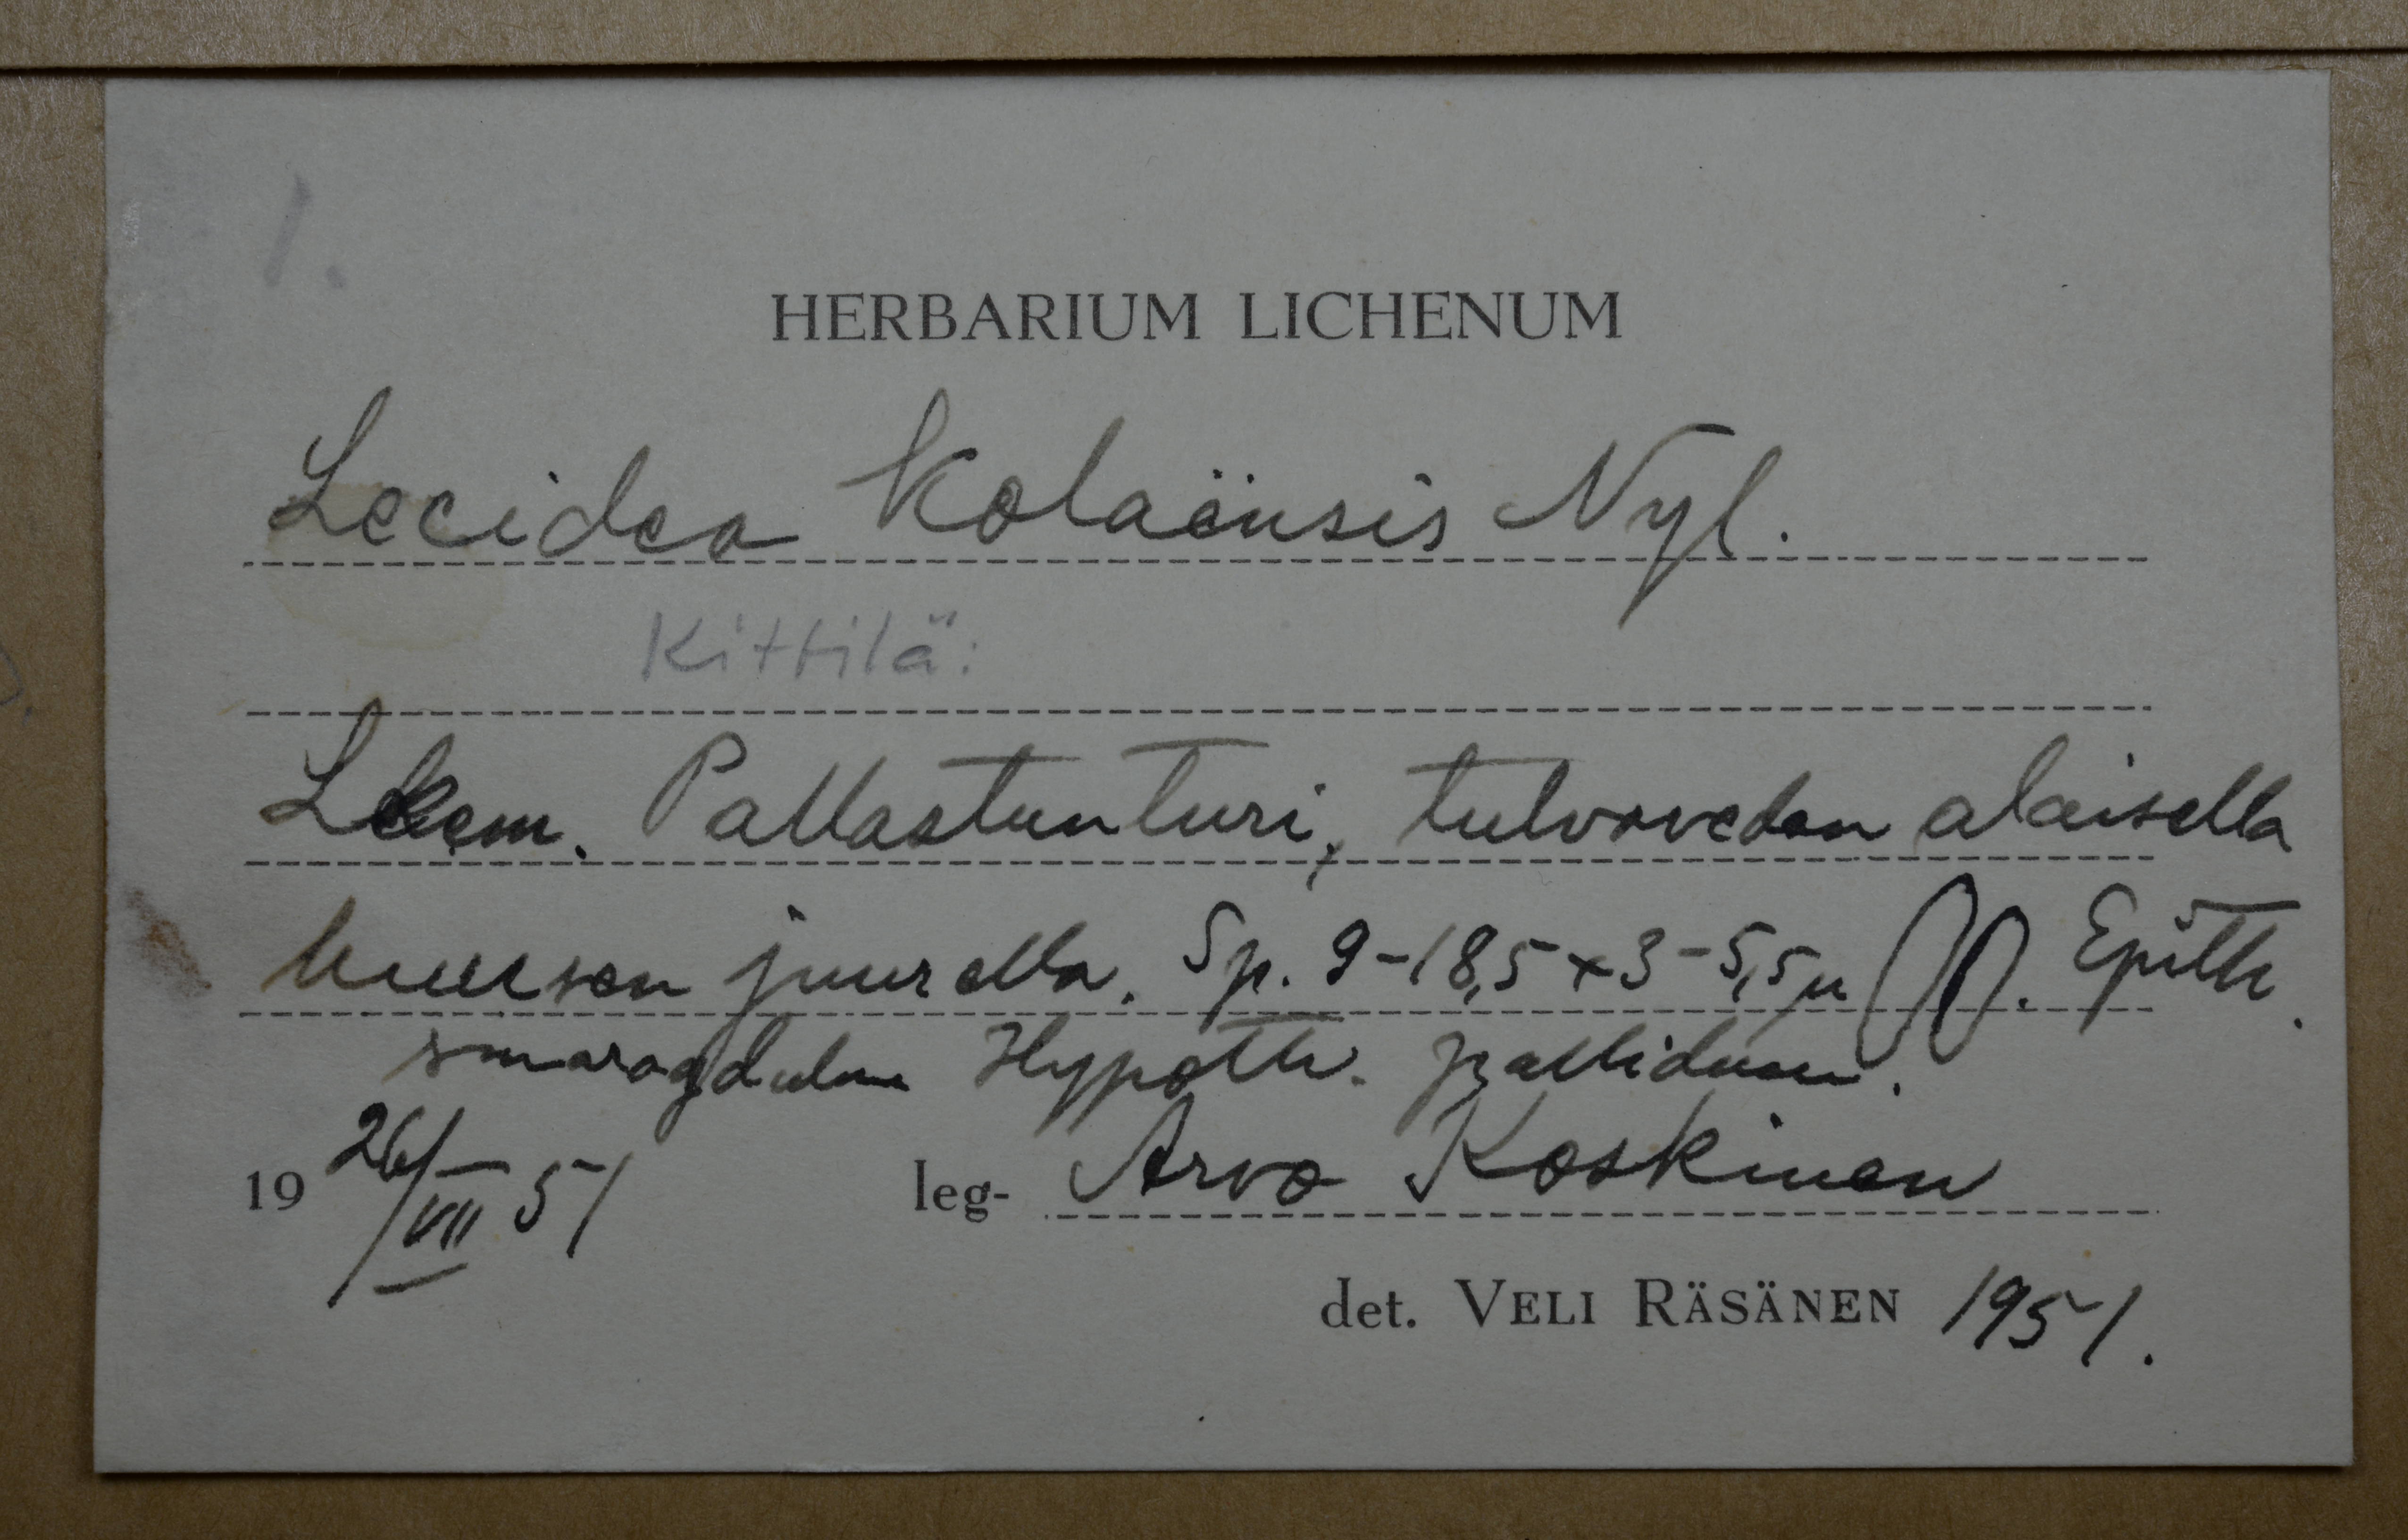 1.
HERBARIUM LICHENUM
Lecidea kolaënsis Nyl.
Kittilä:
Lkem. Pallastunturi, tulvaveden alaisella
kuusen juurella. Sp. 9-18,5 x 3-5,5 µ. Epith.
smaragdulum Hypoth. pallidum.
19 26/VII 51 leg- Arvo Koskinen
det. VELI RÄSÄNEN 1951.